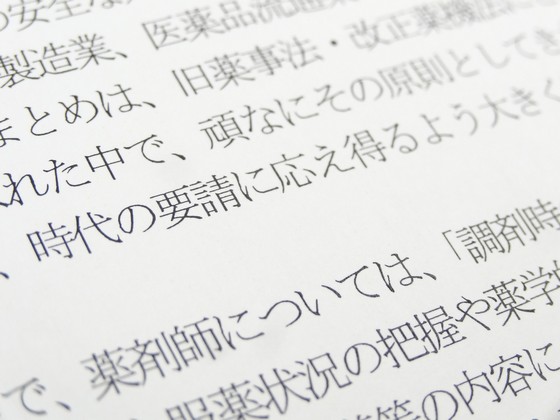 の安全な
製造業、医薬品流通業
まとめは、旧薬事法・改正薬機法に
れた中で、頑なにその原則として
、時代の要請に応え得るよう大きく
で、薬剤師については、「調剤時
服薬状況の把握や薬学
等の内容に